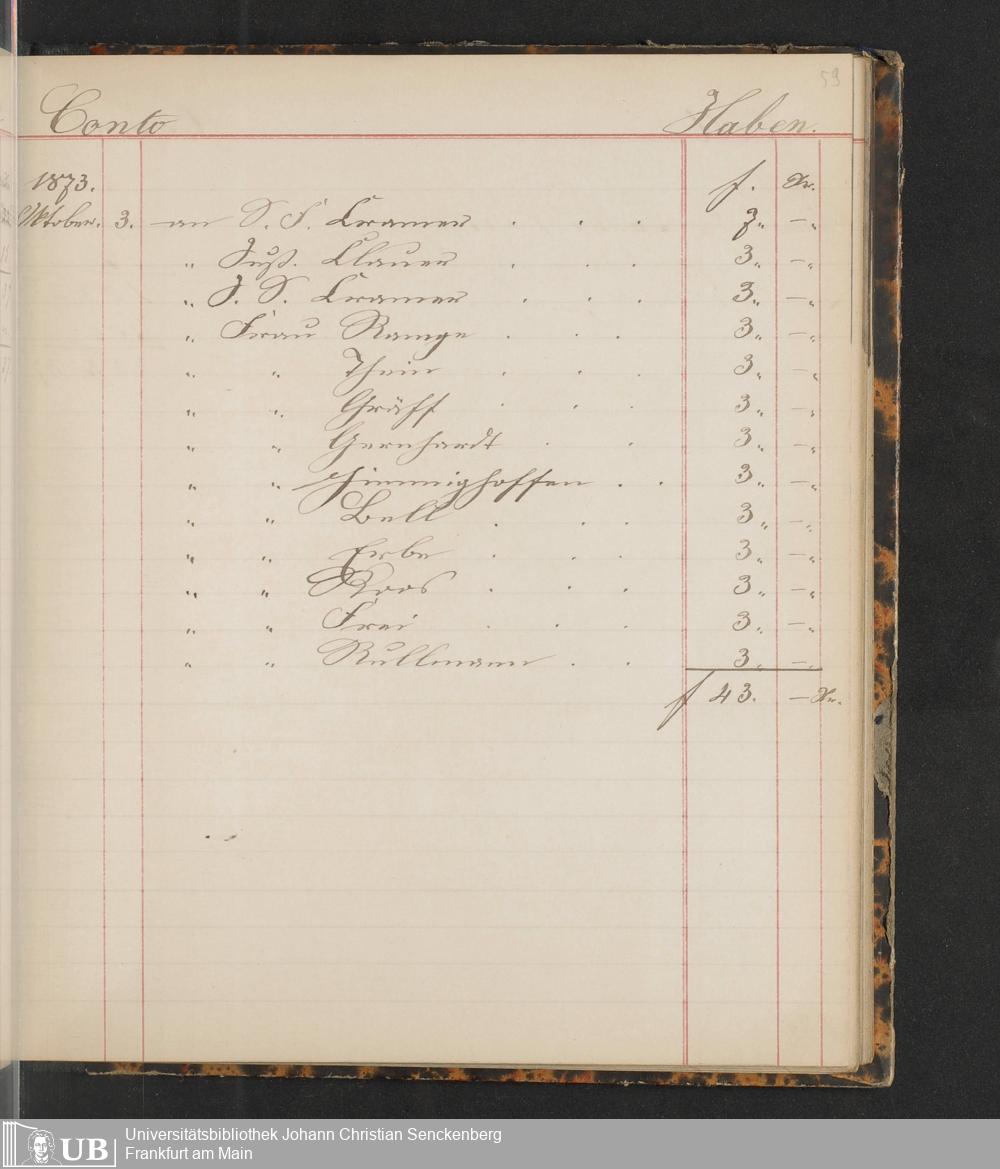 59
Conto Haben.
1873. f. Kr.
Oktober. 3. an S. S. Cramer . . . 7„ —„
„ Just. Clauer . . . 3„ —„
„ J. S. Cramer . . . 3„ —„
„ Frau Ramge . . . 3„ —„
„ „ Thein . . . 3„ —„
„ „ Gräff . . . 3„ —„
„ „ Gernhardt . . 3„ —„
„ „ Himmighoffen . . 3„ —„
„ „ Bell . . . 3„ —„
„ „ Erbe . . . 3„ —„
„ „ Roos . . . 3„ —„
„ „ Frei . . . 3„ —„
„ „ Rullmann . . 3„ —„
f 43. — Kr.
UB
Universitätsbibliothek Johann Christian Senckenberg
Frankfurt am Main